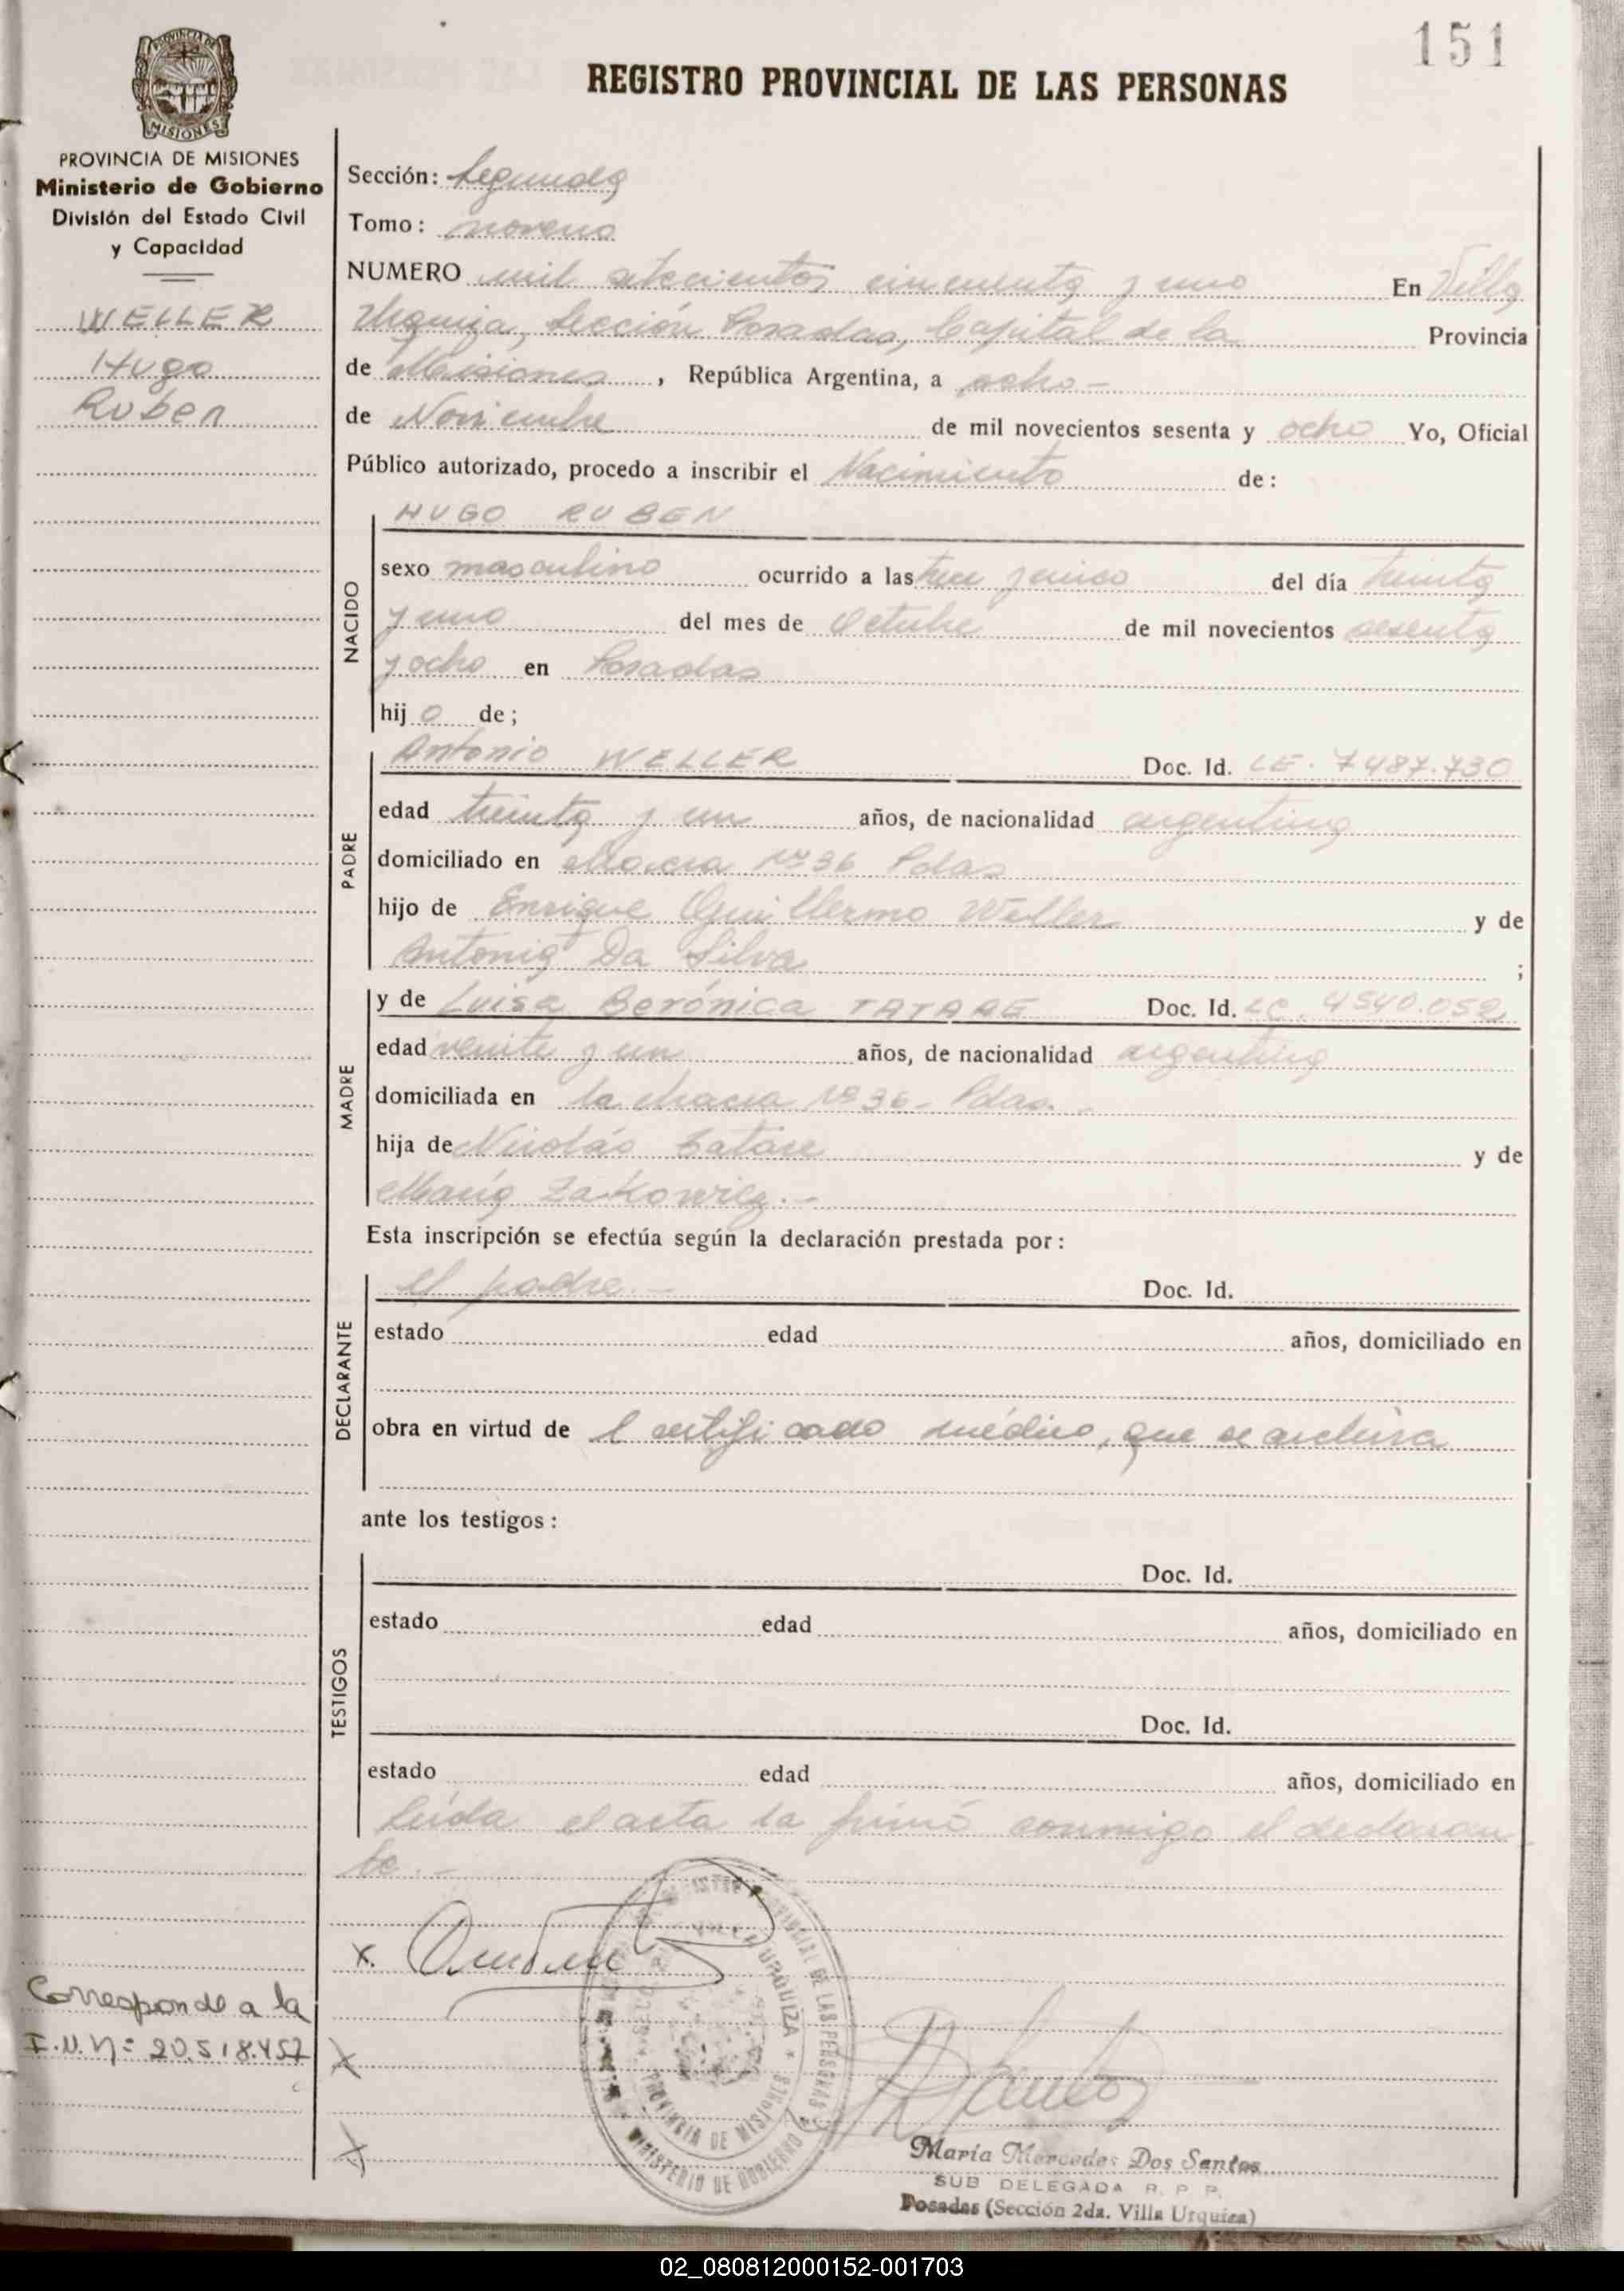 151
PROVINCIA DE MISIONES
REGISTRO PROVINCIAL DE LAS PERSONAS
PROVINCIA DE MISIONES
Ministerio de Gobierno
División del Estado Civil
y Capacidad
WELLER
Hugo
Ruben
Sección: Segunda
Tomo: noveno
NUMERO mil setecientos cincuenta y uno En Villa
Urquiza, Sección Posadas, Capital de la Provincia
de Misiones, República Argentina, a ocho -
de Noviembre de mil novecientos sesenta y ocho Yo, Oficial
Público autorizado, procedo a inscribir el Nacimiento de:
NACIDO
HUGO RUBEN
sexo masculino ocurrido a las trece y cinco del día treinta
y uno del mes de Octubre de mil novecientos sesenta
y ocho en Posadas
hijo de;
PADRE
Antonio WELLER Doc. Id. LE. 7487.730
edad treinta y un años, de nacionalidad argentina
domiciliado en chacra Nº 36 Pdas
hijo de Enrique Guillermo Weller y de
Antonia Da Silva ;
MADRE
y de Luisa Berónica TATARE Doc. Id. LC. 4540.052
edad veinte y un años, de nacionalidad argentina
domiciliada en la chacra Nº 36 - Pdas. -
hija de Nicolás Tatare y de
María Zakowicz. -
Esta inscripción se efectúa según la declaración prestada por:
DECLARANTE
el padre. - Doc. Id.
estado edad años, domiciliado en
obra en virtud de l certificado médico, que se archiva
ante los testigos:
TESTIGOS
Doc. Id.
estado edad años, domiciliado en
Doc. Id.
estado edad años, domiciliado en
Leída el acta la firmó conmigo el declaran
te. -
x.
Corresponde a la
I.N. Nº: 20.518.457
VILLA URQUIZA
PROVINCIA DE MISIONES
MINISTERIO DE GOBIERNO
María Mercedes Dos Santos
SUB DELEGADA R. P. P.
Posadas (Sección 2da. Villa Urquiza)
02_080812000152-001703